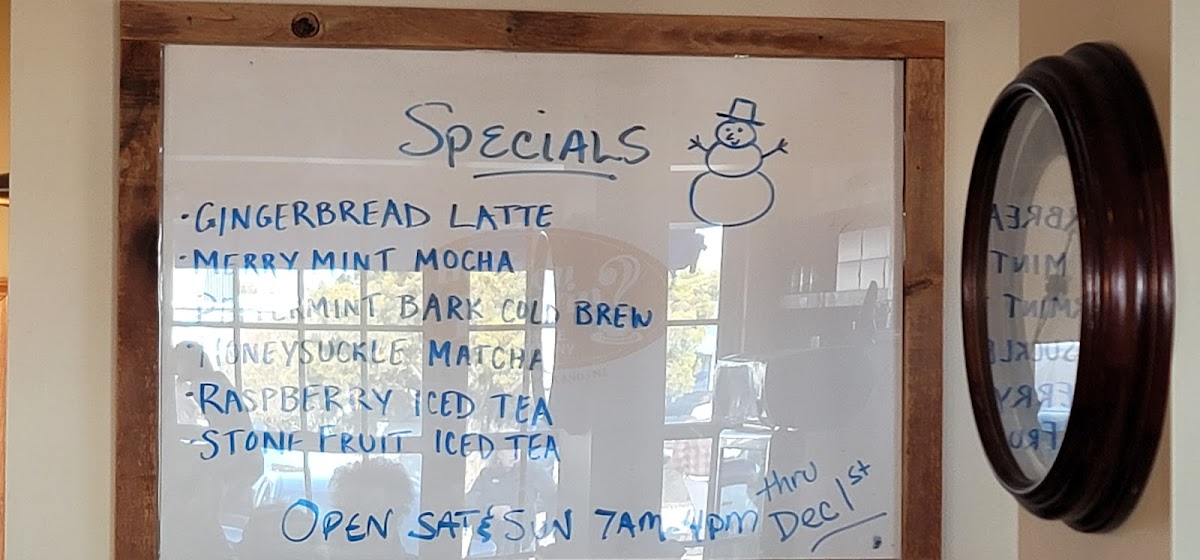 SPECIALS
·GINGERBREAD LATTE
·MERRY MINT MOCHA
PEPPERMINT BARK COLD BREW
·HONEYSUCKLE MATCHA
·RASPBERRY ICED TEA
·STONE FRUIT ICED TEA
OPEN SAT & SUN 7AM-4pm thru Dec 1st